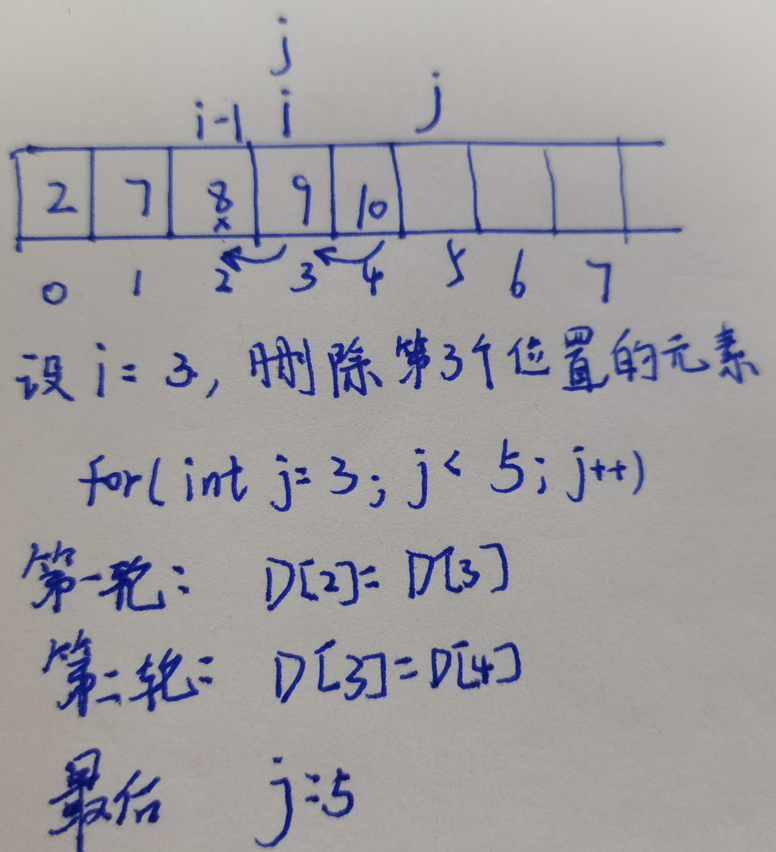 j
i-1 i j
2 7 8 9 10
x
0 1 2 3 4 5 6 7
设 i = 3, 删除第3个位置的元素
for( int j = 3; j < 5; j++)
第一轮: D[2] = D[3]
第二轮: D[3] = D[4]
最后 j=5